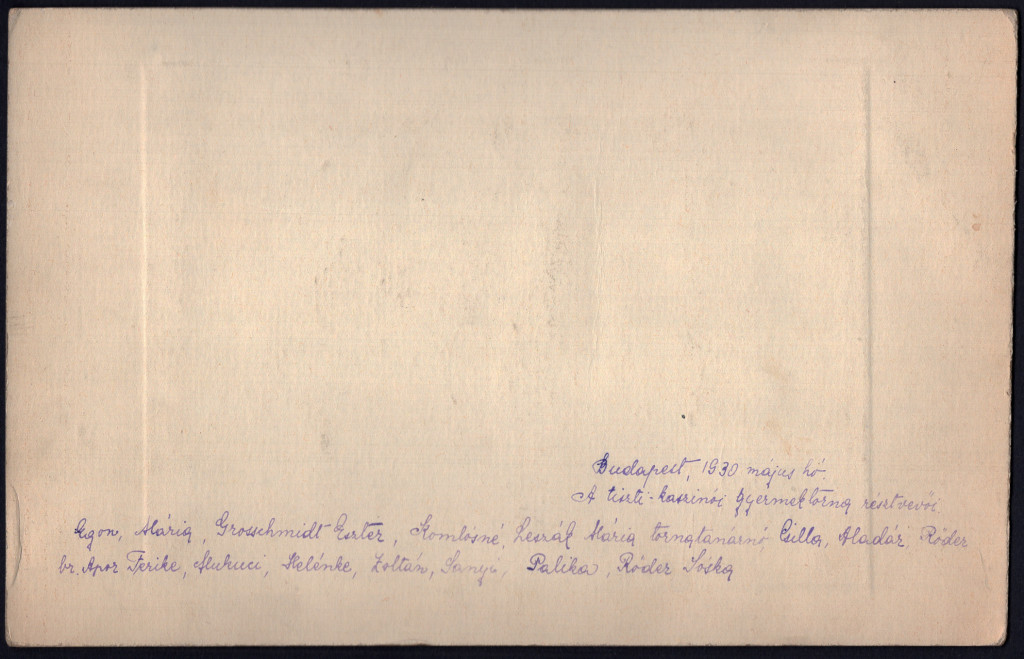 Budapest, 1930 május hó.
A tiszti-kaszinói gyermektorna résztvevői
Egon, Mária, Grosschmidt Eszter, Komlósné, Leszák Mária tornatanárnő Csilla, Aladár, Röder
br. Apor Ferike, Helénke, Zoltán, Sanyi, Palika, Röder Jóska